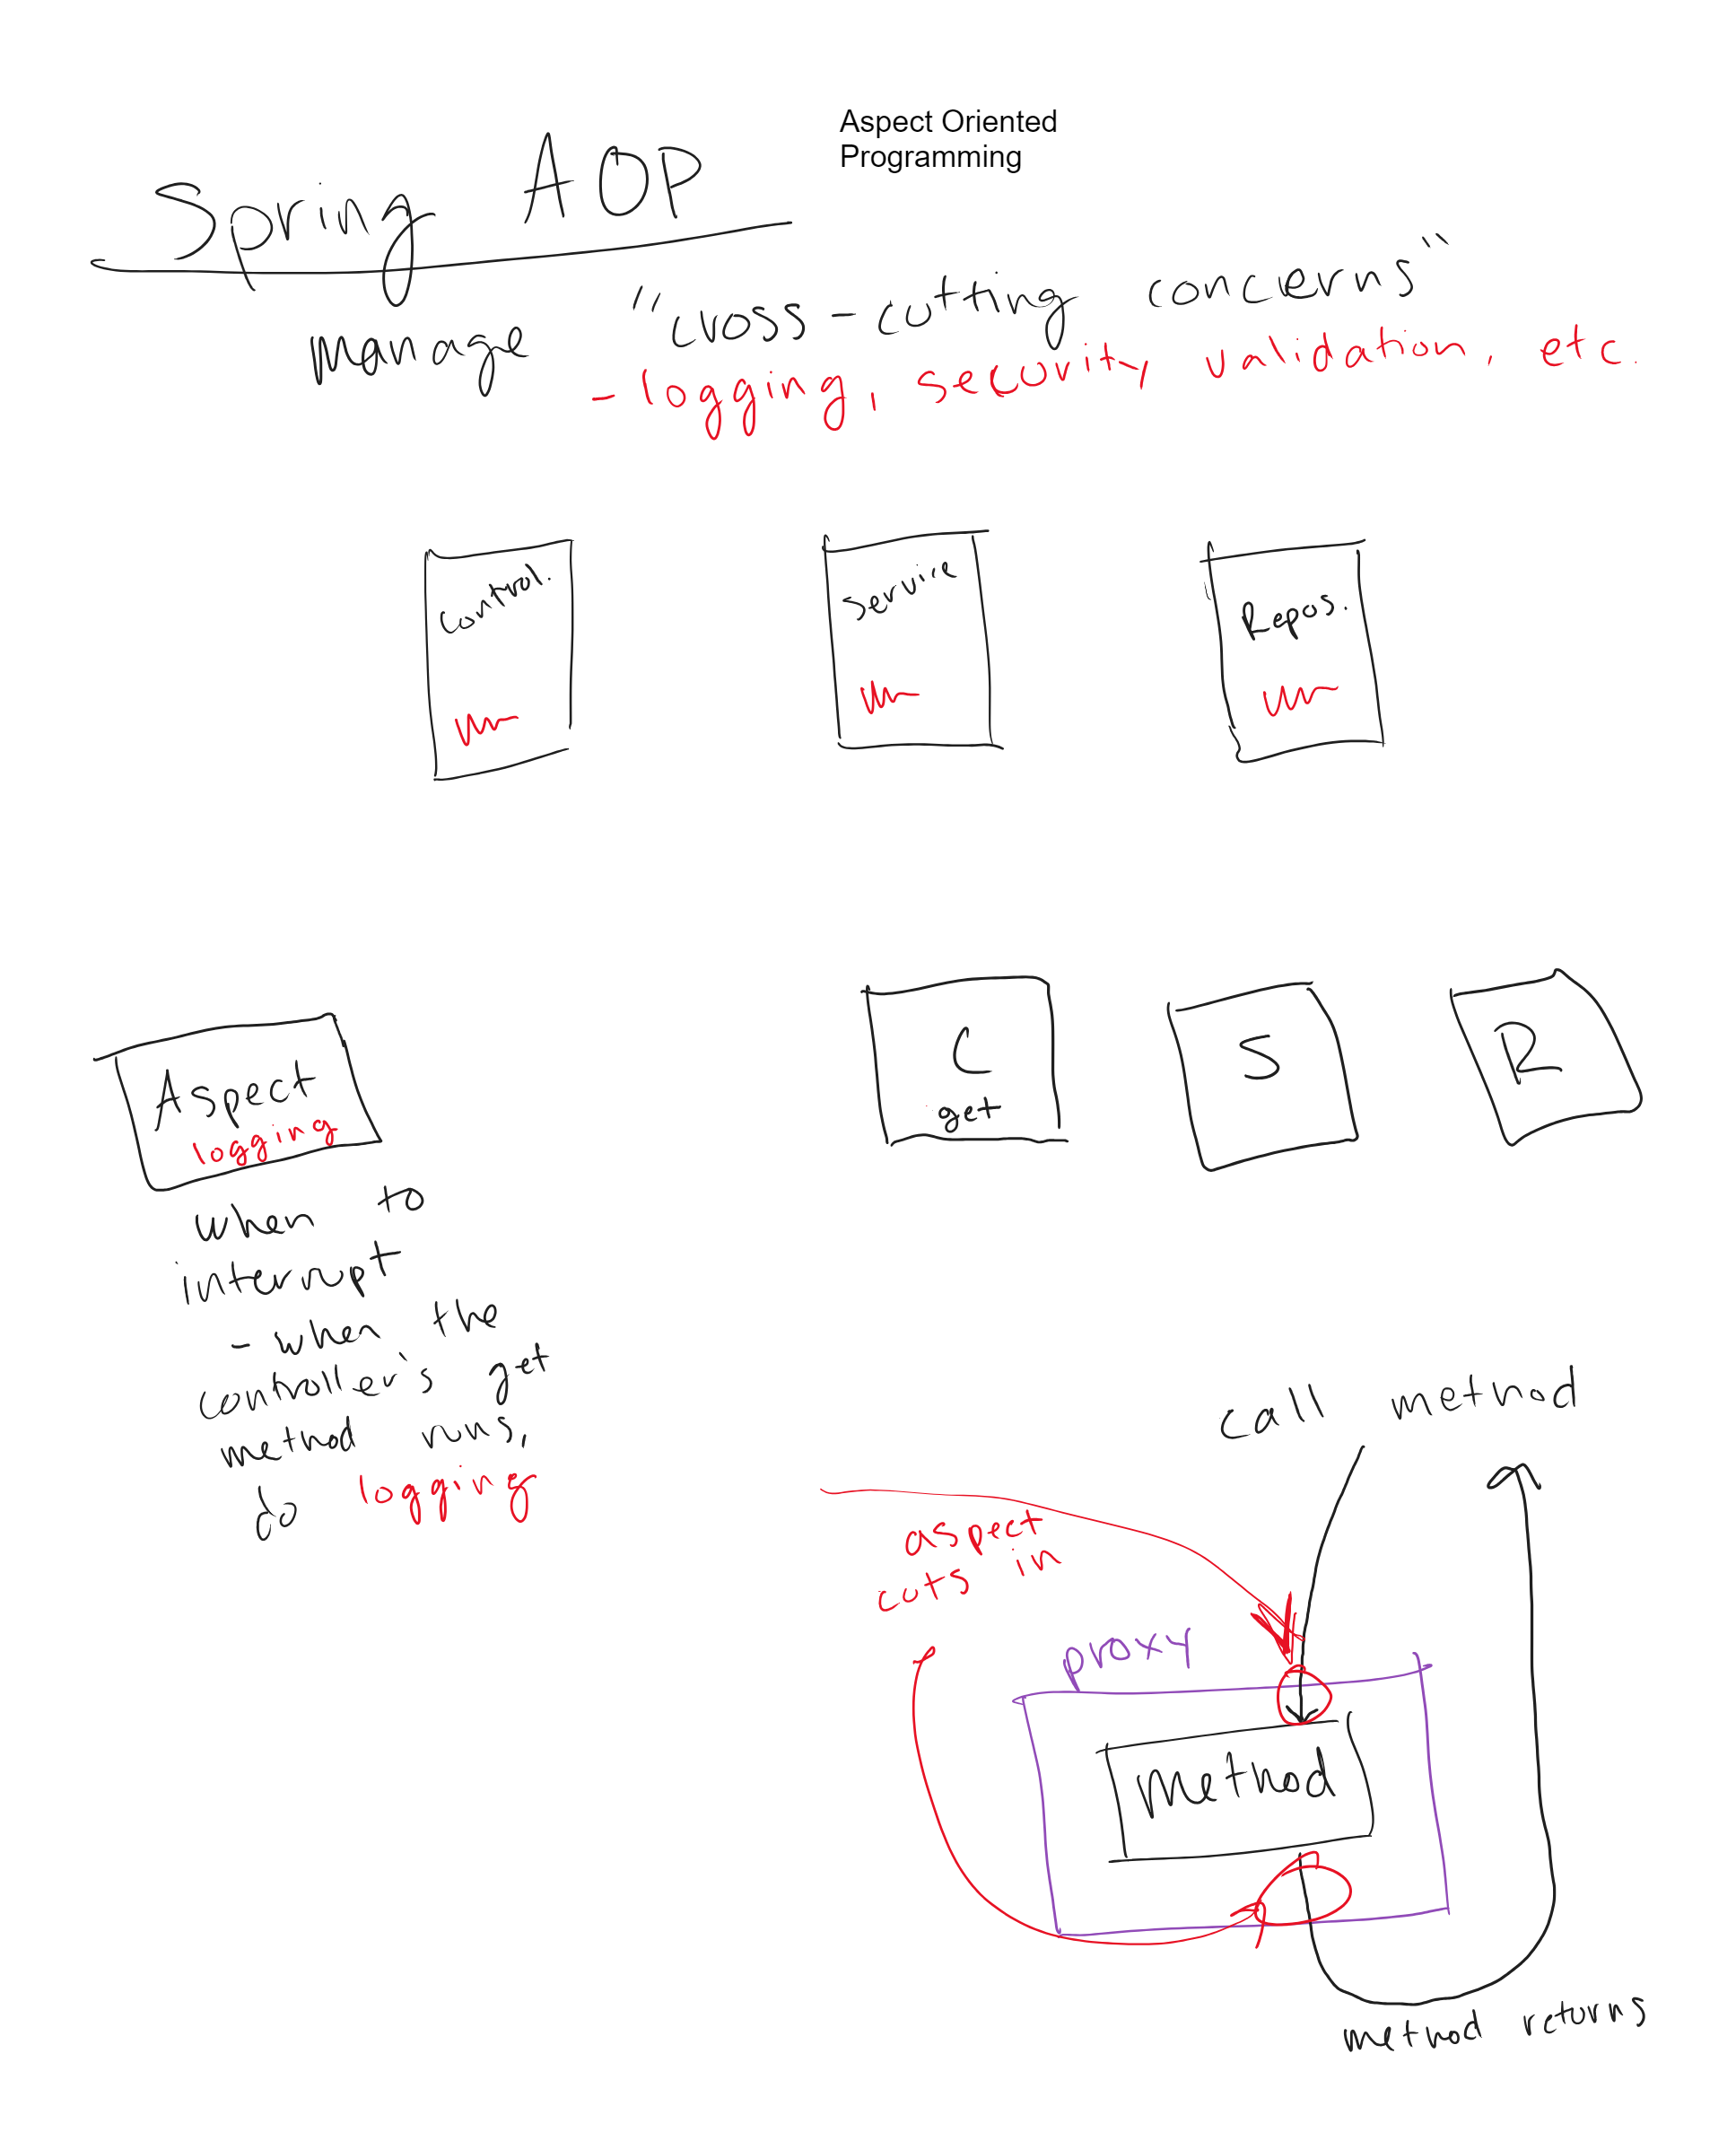 Aspect Oriented
Programming
Spring AOP
manage "cross-cutting concerns"
- logging, security validation, etc.
Control.
Service
Repos.
Aspect
logging
C
get
S
R
when to
interrupt
- when the
controller's get
method runs,
do logging
call method
aspect
cuts in
proxy
Method
method returns